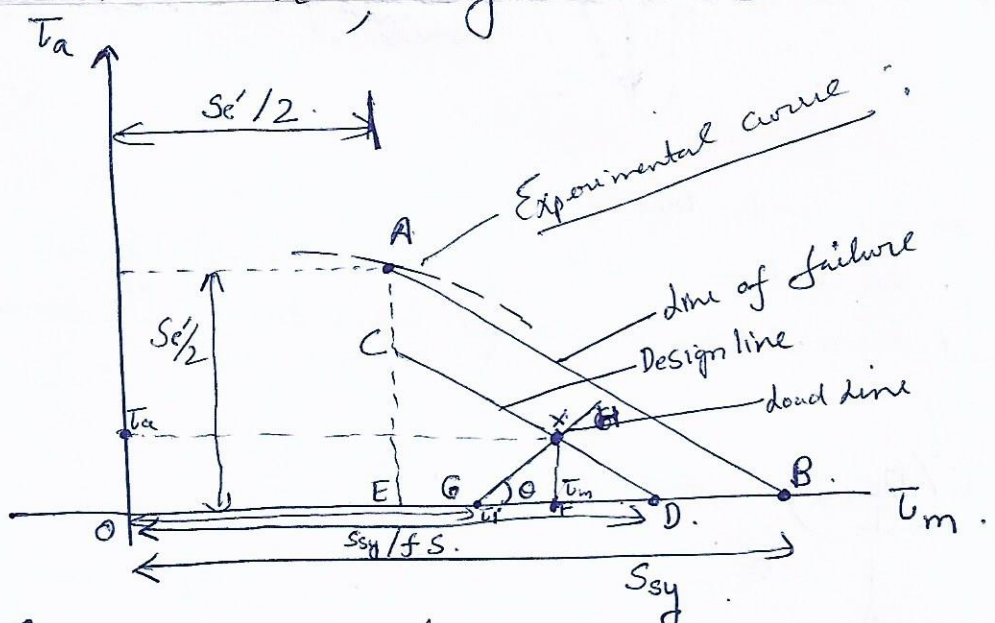 τa
Se'/2
Experimental curve
A
Line of failure
Se'/2
C
Design line
Load Line
τa
X
H
E
G
θ
τm
B
O
τi
F
D.
τm
Ssy/fs.
Ssy